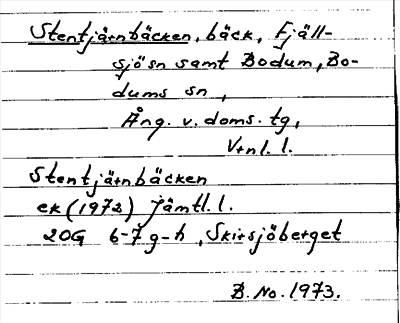 Stentjärnbäcken, bäck, Fjäll-
sjö sn samt Bodum, Bo-
dums sn,
Ång. v. doms. tg,
Vtnl. l.
Stentjärnbäcken
ek (1972) Jämtl. l.
20G 6-7 g-h, Skirsjöberget
B. No. 1973.